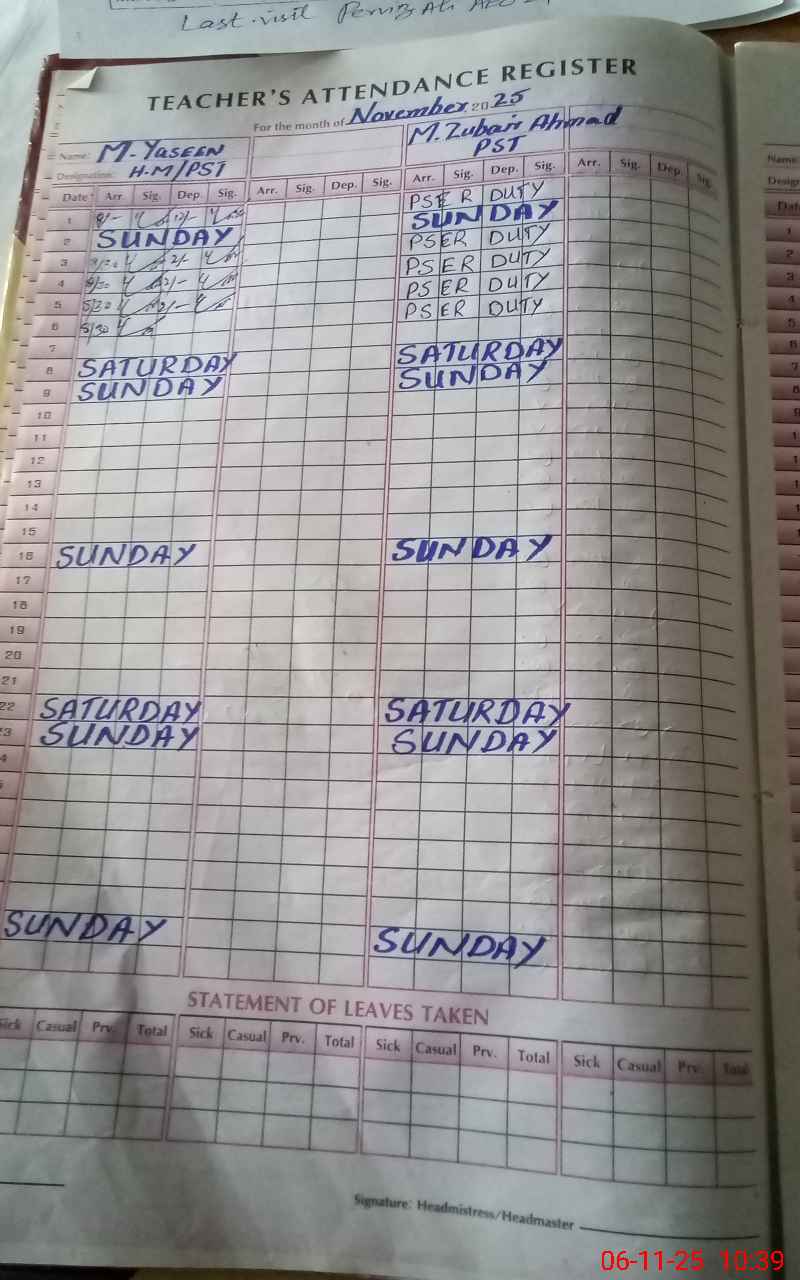 Last visit Perviz Ali AEO
TEACHER'S ATTENDANCE REGISTER
For the month of November 2025
Name: M. YASEEN M. Zubair Ahmad
Designation: H.M/PST PST
Date Arr. Sig. Dep. Sig. Arr. Sig. Dep. Sig. Arr. Sig. Dep. Sig. Arr. Sig. Dep. Sig.
1 8/- 12/- PSER DUTY
2 SUNDAY SUNDAY
3 8/30 2/- PSER DUTY
4 8/30 2/- PSER DUTY
5 8/30 2/- PSER DUTY
6 8/30 PSER DUTY
7
8 SATURDAY SATURDAY
9 SUNDAY SUNDAY
10
11
12
13
14
15
16 SUNDAY SUNDAY
17
18
19
20
21
22 SATURDAY SATURDAY
3 SUNDAY SUNDAY
4
SUNDAY SUNDAY
STATEMENT OF LEAVES TAKEN
Sick Casual Prv. Total Sick Casual Prv. Total Sick Casual Prv. Total Sick Casual Prv. Total
Signature: Headmistress/Headmaster
Name
Desig
Dat
1
2
3
4
5
6
7
8
9
06-11-25 10:39